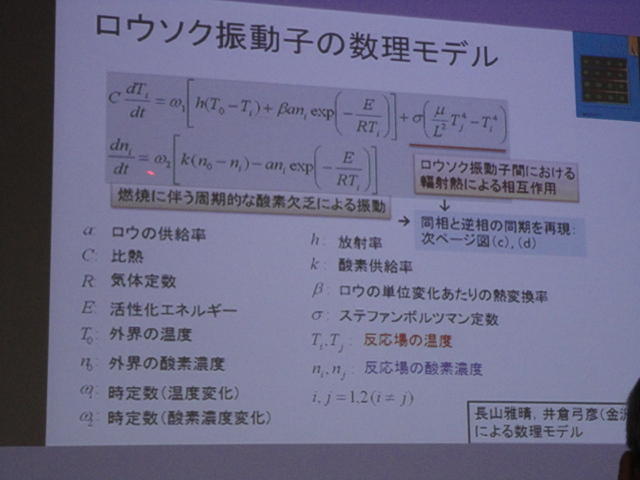 ロウソク振動子の数理モデル
C dT_i/dt = ω_1[h(T_0 − T_i) + βan_i exp(−E/RT_i)] + σ(μ/L² T_j⁴ − T_i⁴)
dn_i/dt = ω_2[k(n_0 − n_i) − an_i exp(−E/RT_i)]
ロウソク振動子間における
輻射熱による相互作用
燃焼に伴う周期的な酸素欠乏による振動
↓
→ 同相と逆相の同期を再現:
次ページ図(c),(d)
a: ロウの供給率
C: 比熱
R: 気体定数
E: 活性化エネルギー
T_0: 外界の温度
n_0: 外界の酸素濃度
ω_1: 時定数(温度変化)
ω_2: 時定数(酸素濃度変化)
h: 放射率
k: 酸素供給率
β: ロウの単位変化あたりの熱変換率
σ: ステファンボルツマン定数
T_i, T_j: 反応場の温度
n_i, n_j: 反応場の酸素濃度
i, j = 1,2 (i ≠ j)
長山雅晴, 井倉弓彦(金沢
による数理モデル